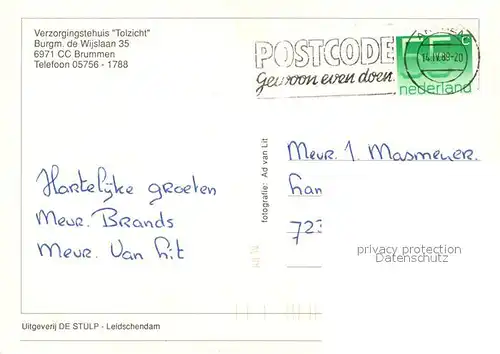 Verzorgingstehuis "Tolzicht"
Burgm. de Wijslaan 35
6971 CC Brummen
Telefoon 05756 - 1788
POSTCODE
gewoon even doen.
55 c
14.IV.89-20
nederland
Hartelijke groeten
Mevr. Brands
Mevr. Van Lit
fotografie: Ad van Lit
Mevr. 1.
723
privacy protection
Datenschutz
Uitgeverij DE STULP - Leidschendam